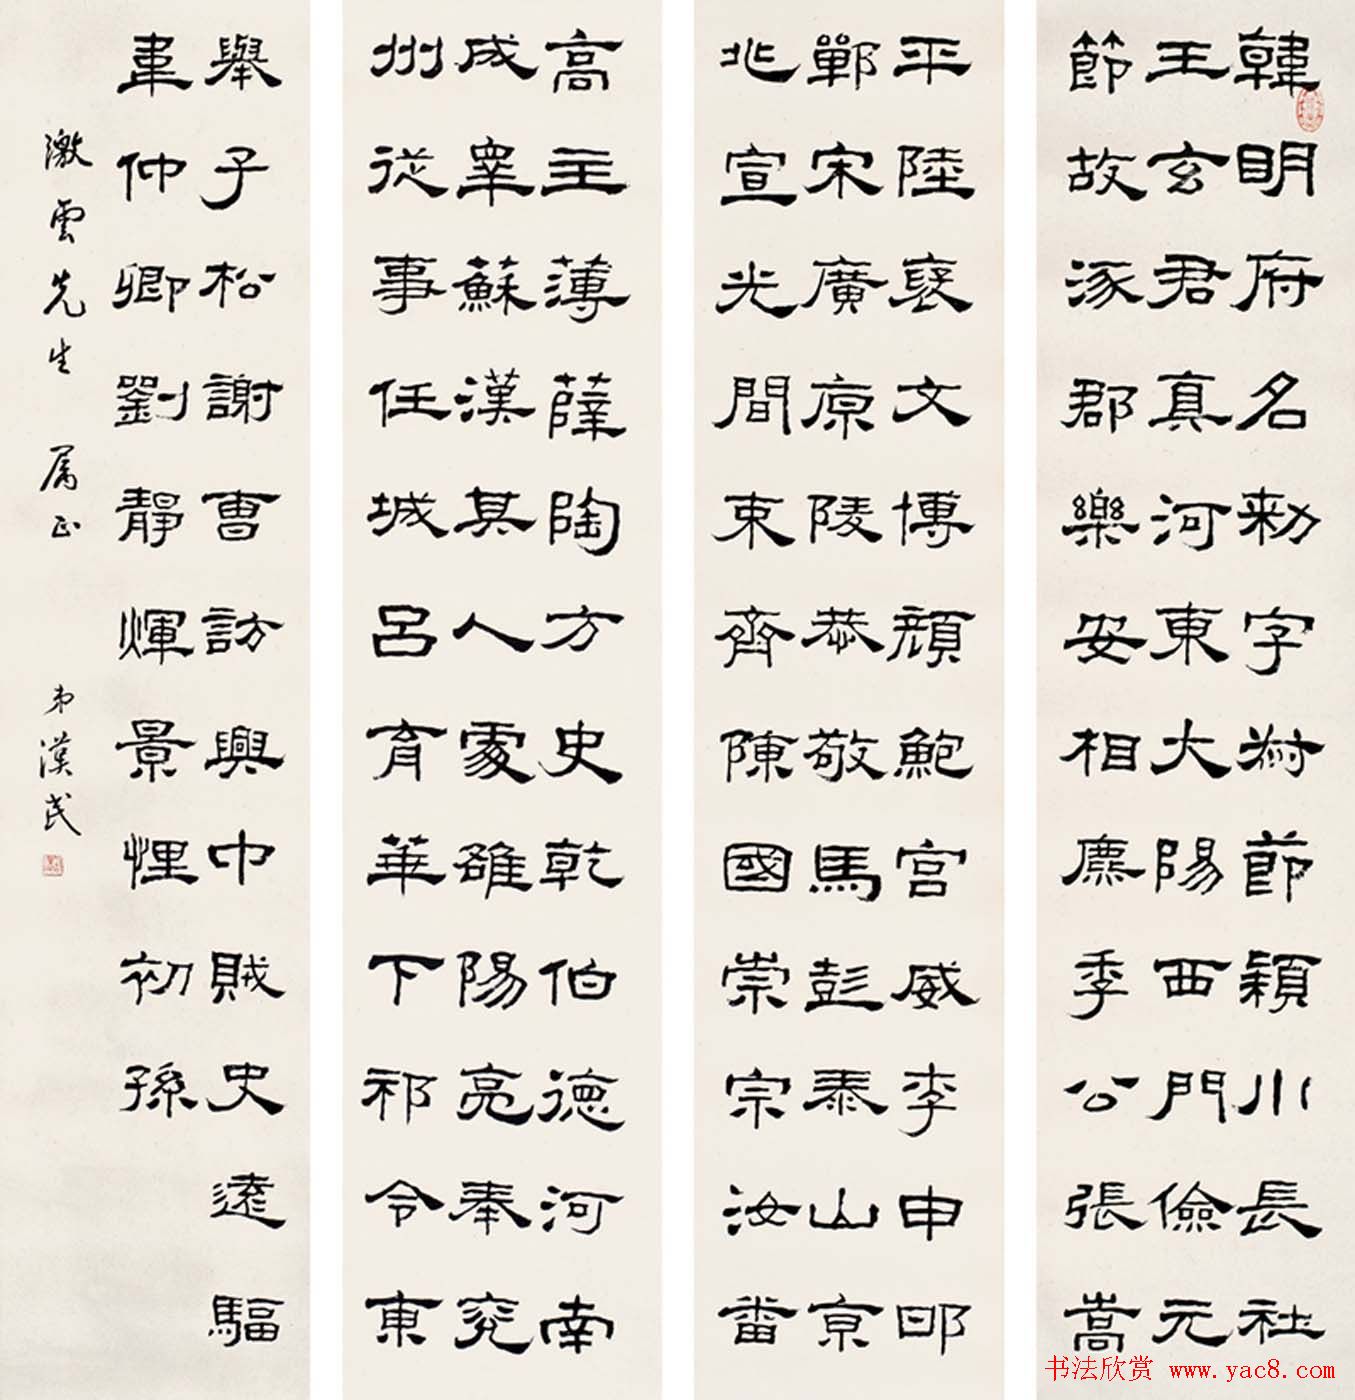 韓明府名勑字叔節潁川長社
王玄君真河東大陽西門儉元
節故涿郡樂安相麃季公張嵩
平陸褱文博顏鮑宮威李申
鄲宋廣原陵恭敬馬彭泰山京
兆宣光間束齊陳國崇宗汝番
高主薄薛陶方史乾伯德河南
成睪蘇漢其人處雒陽亮奉兗
州從事任城呂育華下祁令東
舉子松謝曹訪興中賊史驅
韋仲卿劉靜煇景悝初孫
激雲先生 属正
弟漢民
书法欣赏 www.yac8.com